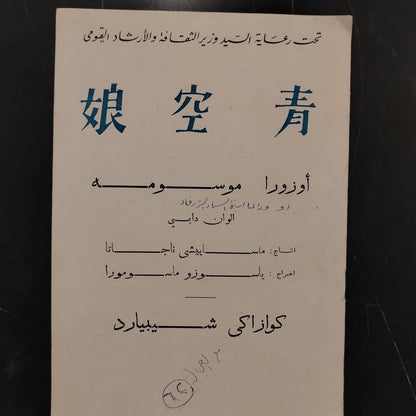 تحت رعاية السيد وزير الثقافة والأرشاد القومى
青空娘
أوزورا موسومه
الوان دابي
انتاج: ماسايشي ناجاتا
اخراج: ياسوزو ماسومورا
كوازاكي شيبيارد